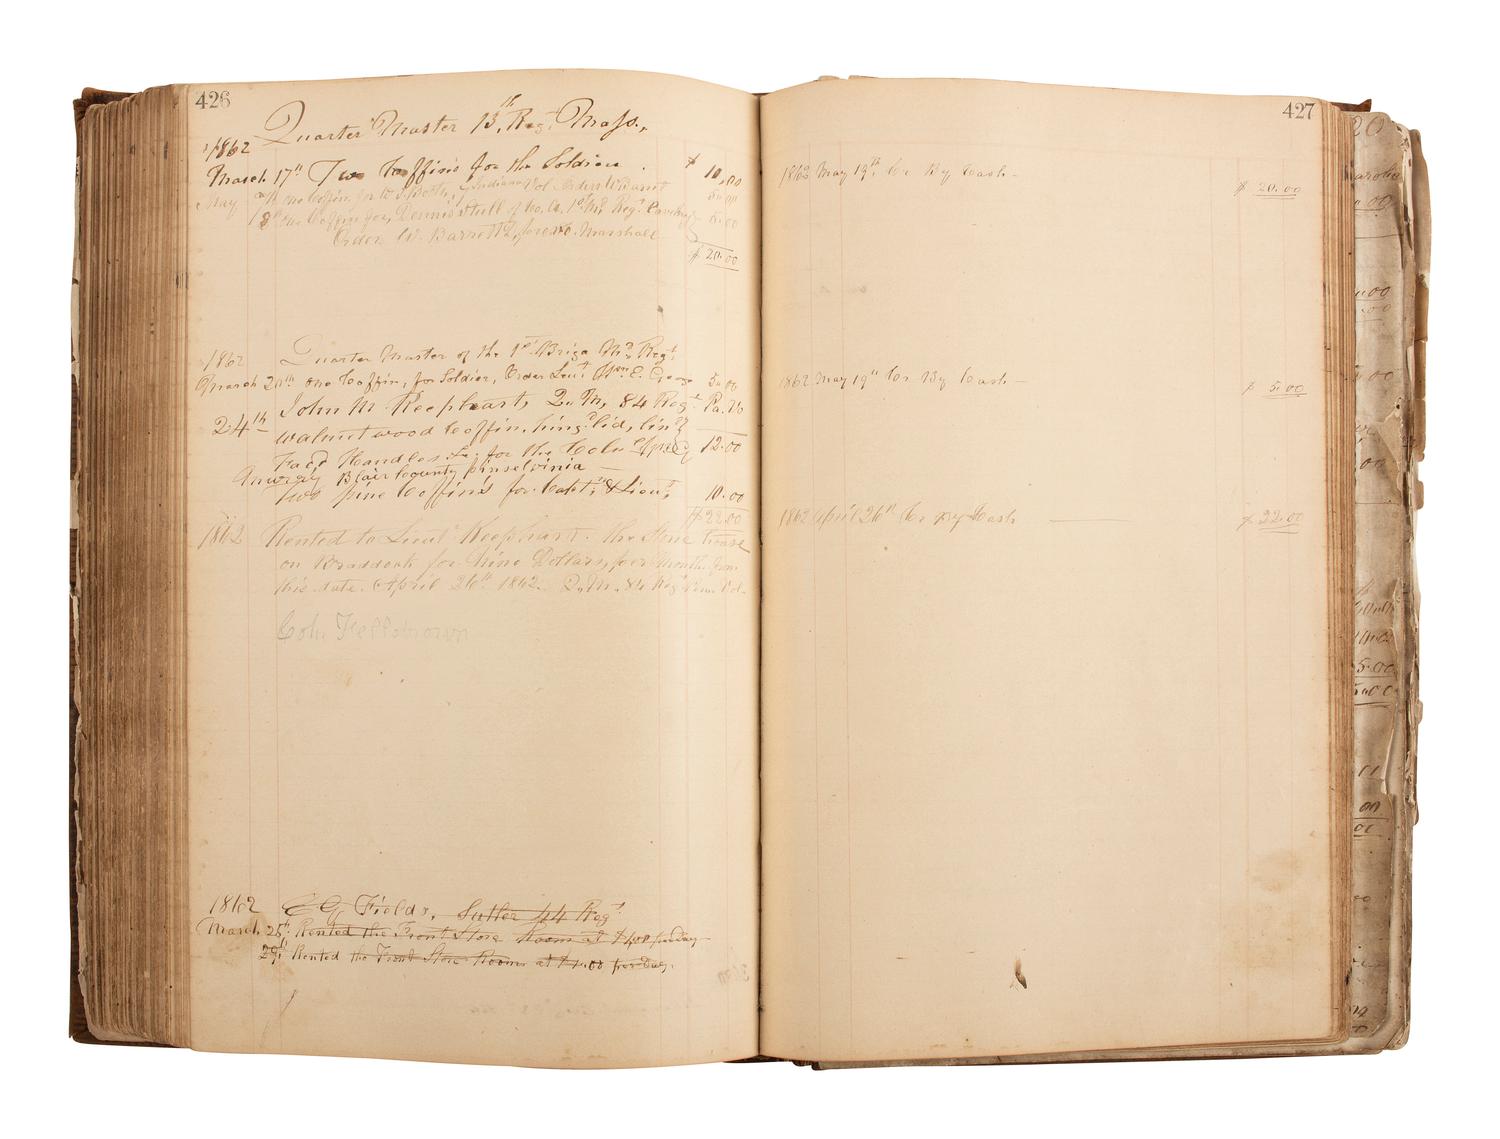 426
Quarter Master 13th Regt Mass.,
1862
March 17th Two Coffins for the Soldiers $ 10,00
May one Coffin for Indiana Vol. Order W. Barrett 5.00
18th one Coffin for, Dennis Stull of Co, A, 1st Md Regt Cavelry 5.00
Order W. Barrett, provo. Marshall
$ 20.00
1862 Quarter Master of the 1st Briga Md Regt
March 20th one Coffin, for Soldier, Order Leut Wm E. George 5.00
24th John M Keephart, Q. M, 84 Regt Pa. Vo
walnut wood Coffin, hingd lid, lind
Facd Handles &c for the Coln 12.00
Murray Blair County pinselvinia
Two pine Coffins for Capt, & Lieut, 10.00
$ 22.00
1862 Rented to Lieut Keephart. the Stone house
on Braddock for Nine Dollars, per Month from
this date. April 26th 1862. Q. M. 84 Regt Penn. Vol.
Coln
1862 E G Fields, Sutler 44 Regt
March 25th Rented the Front Store Room at $ 1,00 per day
29th Rented the Front Store Room at $ 1.00 per day.
427
1862 May 19th Cr By Cash $ 20.00
1862 May 19th Cr By Cash $ 5.00
1862 April 26th Cr By Cash $ 22.00